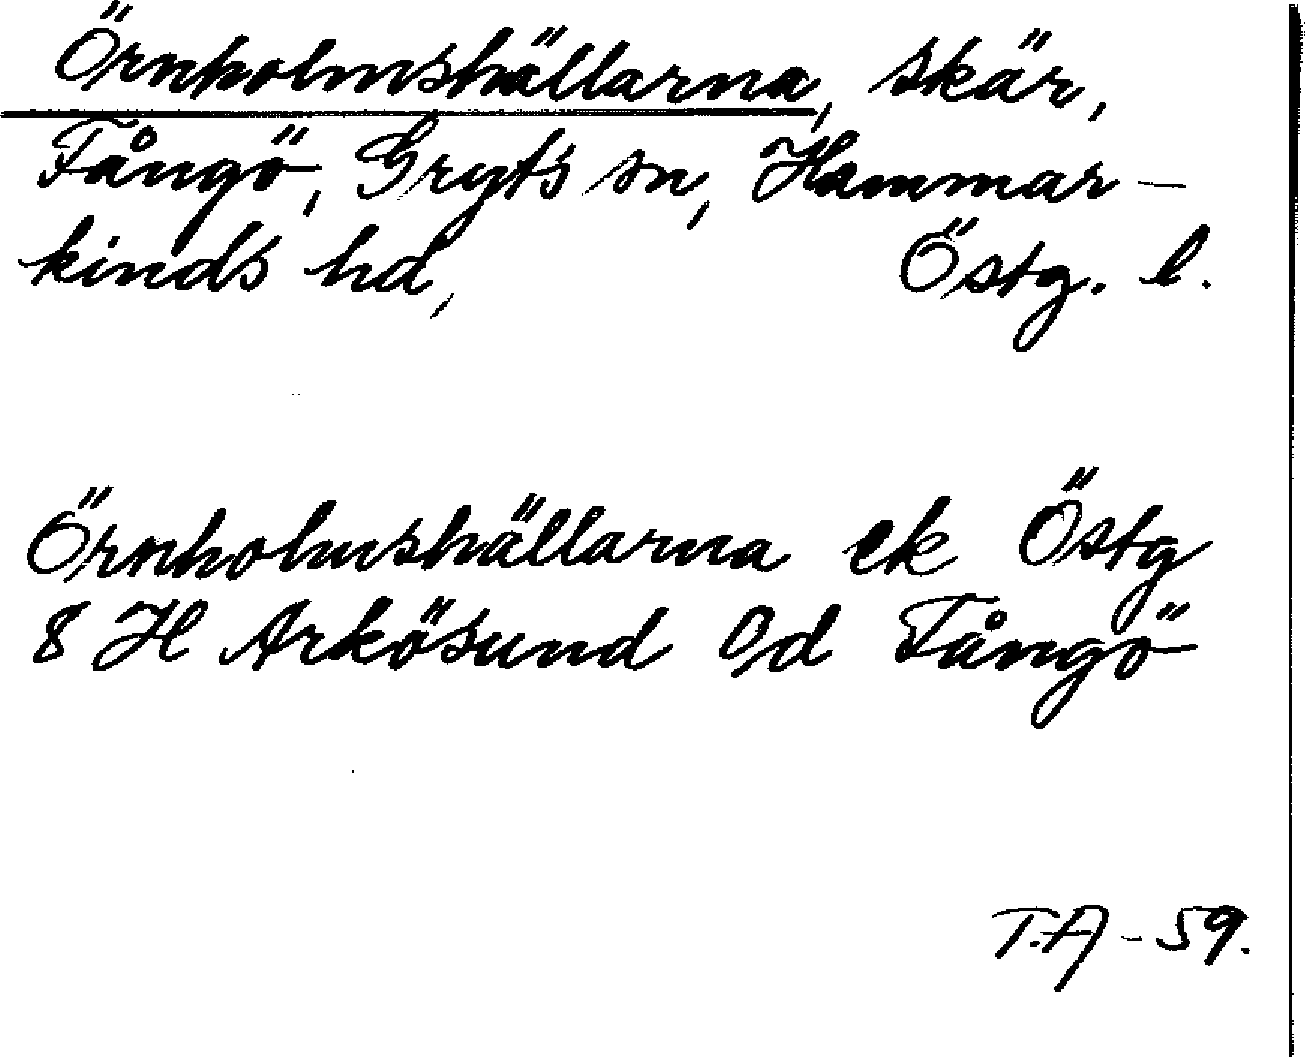 Örnholmshällarna, skär,
Fångö, Gryts sn, Hammar-
kinds hd, Östg. l.
Örnholmshällarna ek Östg
8 H Arkösund Od Fångö
T.A - 59.